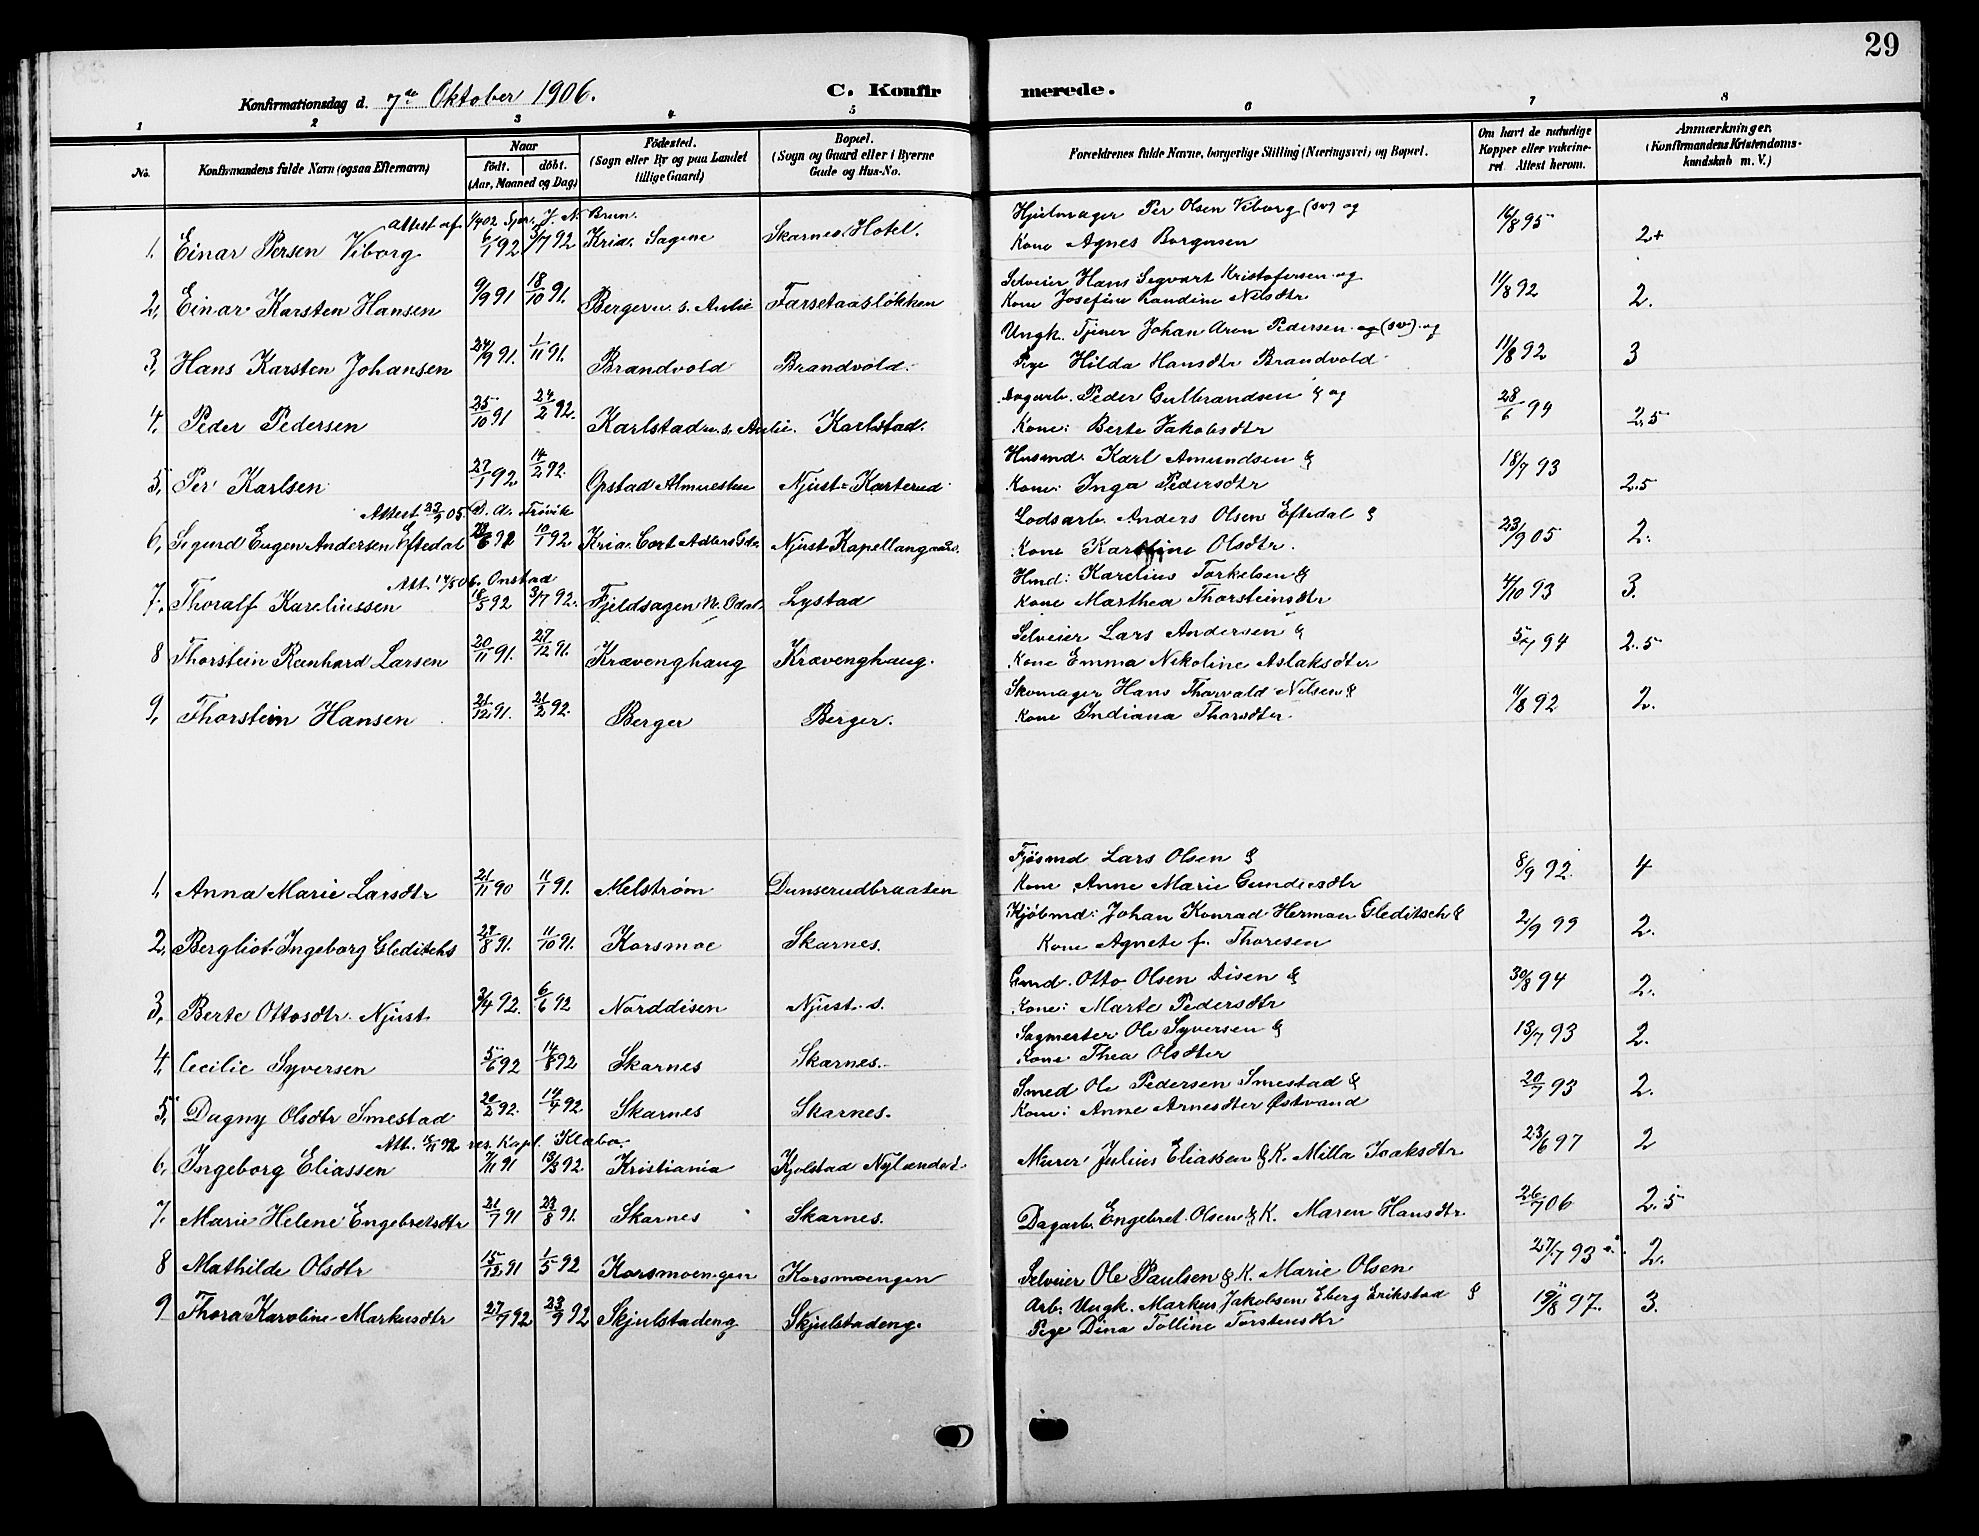 29
Konfirmationsdag d. 7de Oktober 1906. C. Konfirmerede.
1 2 3 4 5 6 7 8
No. Konfirmandens fulde Navn (ogsaa Efternavn) Naar födt. döbt. (Aar, Maaned og Dag) Födested. (Sogn eller By og paa Landet tillige Gaard) Bopæl. (Sogn og Gaard eller i Byerne Gade og Hus-No. Forældrenes fulde Navne, borgerlige Stilling (Næringsvei) og Bopæl. Om havt de naturlige Kopper eller vakcineret. Attest herom. Anmærkninger. (Konfirmandens Kristendomskundskab m. V.)
Attest af 1/4 02 J. N. Brun.
1, Einar Persen Viborg 6/1 92 3/7 92 Kria. Sagene Skarnes Hotel. Hjulmager Per Olsen Viborg (sv) og
Kone Agnes Borgersen 16/8 95 2+
2, Einar Karsten Hansen 9/9 91 18/10 91. Berger u. s. Aulie Færsetaasløkken Selveier Hans Segvart Kristofersen og
Kone Josefine Randine Nilsdtr 11/8 92 2.
3, Hans Karsten Johansen 24/9 91. 1/11 91. Brandvold Brandvold. Ungk. Tjener Johan Aron Pedersen (sv) og
Pige Hilda Hansdtr Brandvold 11/8 92 3
4, Peder Pedersen 25/10 91 24/2 92. Karlstad u. s. Aulie. Karlstad. Dagarb. Peder Gulbrandsen & og
Kone: Berte Jakobsdtr 28/6 94 2.5
5, Per Karlsen 27/1 92 14/2 92. Opstad Almuestue Njust-Karterud Husmd. Karl Amundsen &
Kone: Inga Pedersdtr 18/7 93 2.5
Attest 23/9 05
6, Sigurd Eugen Andersen Eftedal 10/1 92 Kria. Cort Adlers Gde Njust Kapellangaard. Lodsarb. Anders Olsen Eftedal &
Kone Karstine Olsdtr. 23/9 05 2.
Att. 17/5 06. Onstad
7, Thoralf Kareliussen 18/5 92 3/7 92. Fjeldsagen N. Odal. Lystad Hmd: Karelius Torkelsen &
Kone Marthea Thorsteinsdtr 4/10 93 3.
8 Thorstein Reinhard Larsen 20/11 91. 27/12 91. Krævenghaug Krævenghaug. Selveier Lars Andersen &
Kone Emma Nikoline Aslaksdter 5/7 94 2.5
9, Thorstein Hansen 21/12 91. 21/2 92. Berger Berger. Skomager Hans Thorvald Nilsen &
Kone Indiana Thorsdter. 11/8 92 2.
1, Anna Marie Larsdtr 21/11 90 11/1 91. Melstrøm Dunserudbraaten Fjøsmd Lars Olsen &
Kone Anne Marie Gundersdtr 8/9 92. 4
2, Bergliot Ingeborg Gleditchs 24/8 91. 11/10 91. Korsmoe Skarnes. Kjöbmd: Johan Konrad Herman Gleditsch &
Kone Agnete f. Thoresen 2/9 99 2.
3, Berte Ottosdtr. Njust 3/4 92. 6/6 92 Norddisen Njust. s. Gmd. Otto Olsen Disen &
Kone: Marte Pedersdtr 30/8 94 2.
4, Cecilie Syversen 5/6 92 14/8 92 Skarnes Skarnes. Sagmester Ole Syversen &
Kone Thea Olsdter 13/7 93 2.
5, Dagny Olsdtr Smestad 20/2 92. 14/4 92 Skarnes Skarnes. Smed Ole Pedersen Smestad &
Kone: Anne Arnesdter Østvand 20/7 93 2.
Att. res. Kapl. Klæbo.
6, Ingeborg Eliassen 7/11 91 13/3 92. Kristiania Kjolstad Nylændet. Murer Julius Eliassen & K. Milla Isaksdtr 23/6 97 2
7. Marie Helene Engebretsdtr 21/7 91 23/8 91. Skarnes Skarnes. Dagarb. Engebret Olsen & K. Maren Hansdtr. 26/7 06 2.5
8 Mathilde Olsdtr 15/12 91 1/5 92 Korsmoengen Korsmoengen Selveier Ole Paulsen & K. Marie Olsen 27/7 93 2.
9 Thora Karoline Markusdtr 27/7 92 23/9 92 Skjulstadeng Skjulstadeng. Arb. Ungk. Markus Jakobsen Eberg Erikstad &
Pige Dina Tolline Torstensdtr 19/8 97. 3.